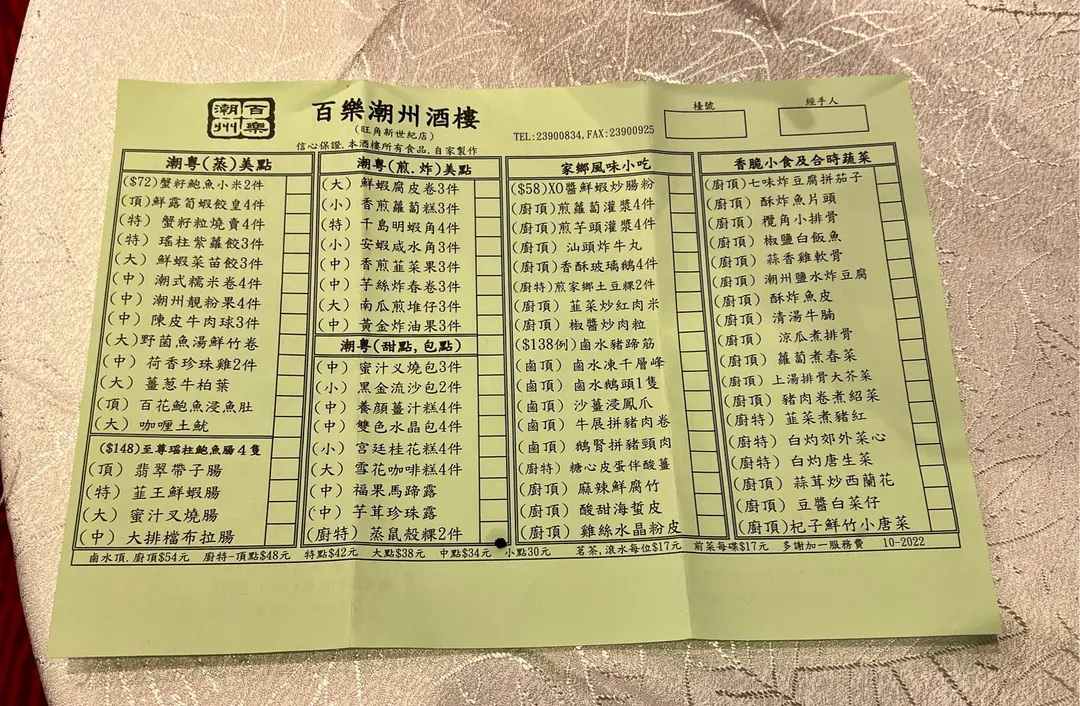 百樂
潮州
百樂潮州酒樓
(旺角新世紀店)
信心保證.本酒樓所有食品.自家製作
TEL:23900834,FAX:23900925
檯號
經手人
潮粤(蒸)美點
($72)蟹籽鮑魚小米2件
(頂)鮮露筍蝦餃皇4件
(特) 蟹籽粒燒賣4件
(特) 瑤柱紫蘿餃3件
(大) 鮮蝦菜苗餃3件
(中) 潮式糯米卷4件
(中) 潮州靚粉果4件
(中) 陳皮牛肉球3件
(大)野菌魚湯鮮竹卷
(中) 荷香珍珠雞2件
(大) 薑葱牛柏葉
(頂) 百花鮑魚浸魚肚
(大) 咖喱土魷
($148)至尊瑤柱鮑魚腸4隻
(頂) 翡翠帶子腸
(特) 韮王鮮蝦腸
(大) 蜜汁叉燒腸
(中) 大排檔布拉腸
潮粤(煎.炸)美點
(大) 鮮蝦腐皮卷3件
(小) 香煎蘿蔔糕3件
(特) 千島明蝦角4件
(小) 安蝦咸水角3件
(中) 香煎韮菜果3件
(中) 芋絲炸春卷3件
(大) 南瓜煎堆仔3件
(中) 黃金炸油果3件
潮粤(甜點,包點)
(中) 蜜汁叉燒包3件
(小) 黑金流沙包2件
(中) 養顔薑汁糕4件
(中) 雙色水晶包4件
(小) 宫廷桂花糕4件
(大) 雪花咖啡糕4件
(中) 福果馬蹄露
(中) 芋茸珍珠露
(廚特) 蒸鼠殼粿2件
家鄉風味小吃
($58)XO醬鮮蝦炒腸粉
(廚頂)煎蘿蔔灌漿4件
(廚頂)煎芋頭灌漿4件
(廚頂) 汕頭炸牛丸
(廚頂)香酥玻璃鵝4件
(廚特)煎家鄉土豆粿2件
(廚頂) 韮菜炒紅肉米
(廚頂) 椒醬炒肉粒
($138例)鹵水豬蹄筋
(鹵頂) 鹵水凍千層峰
(鹵頂) 鹵水鵝頭1隻
(鹵頂) 沙薑浸鳳爪
(鹵頂) 牛展拼豬肉卷
(鹵頂) 鵝腎拼豬頸肉
(廚特) 糖心皮蛋伴酸薑
(廚頂) 麻辣鮮腐竹
(廚頂) 酸甜海蜇皮
(廚頂) 雞絲水晶粉皮
香脆小食及合時蔬菜
(廚頂)七味炸豆腐拼茄子
(廚頂) 酥炸魚片頭
(廚頂) 欖角小排骨
(廚頂) 椒鹽白飯魚
(廚頂) 蒜香雞軟骨
(廚頂) 潮州鹽水炸豆腐
(廚頂) 酥炸魚皮
(廚頂) 清湯牛腩
(廚頂) 涼瓜煮排骨
(廚頂) 蘿蔔煮春菜
(廚頂) 上湯排骨大芥菜
(廚頂) 豬肉卷煮紹菜
(廚特) 韮菜煮豬紅
(廚特) 白灼郊外菜心
(廚特) 白灼唐生菜
(廚頂) 蒜茸炒西蘭花
(廚頂) 豆醬白菜仔
(廚頂)杞子鮮竹小唐菜
鹵水頂.廚頂$54元 廚特-頂點$48元 特點$42元 大點$38元 中點$34元 小點30元 茗茶,滾水每位$17元 前菜每碟$17元 多謝加一服務費 10-2022